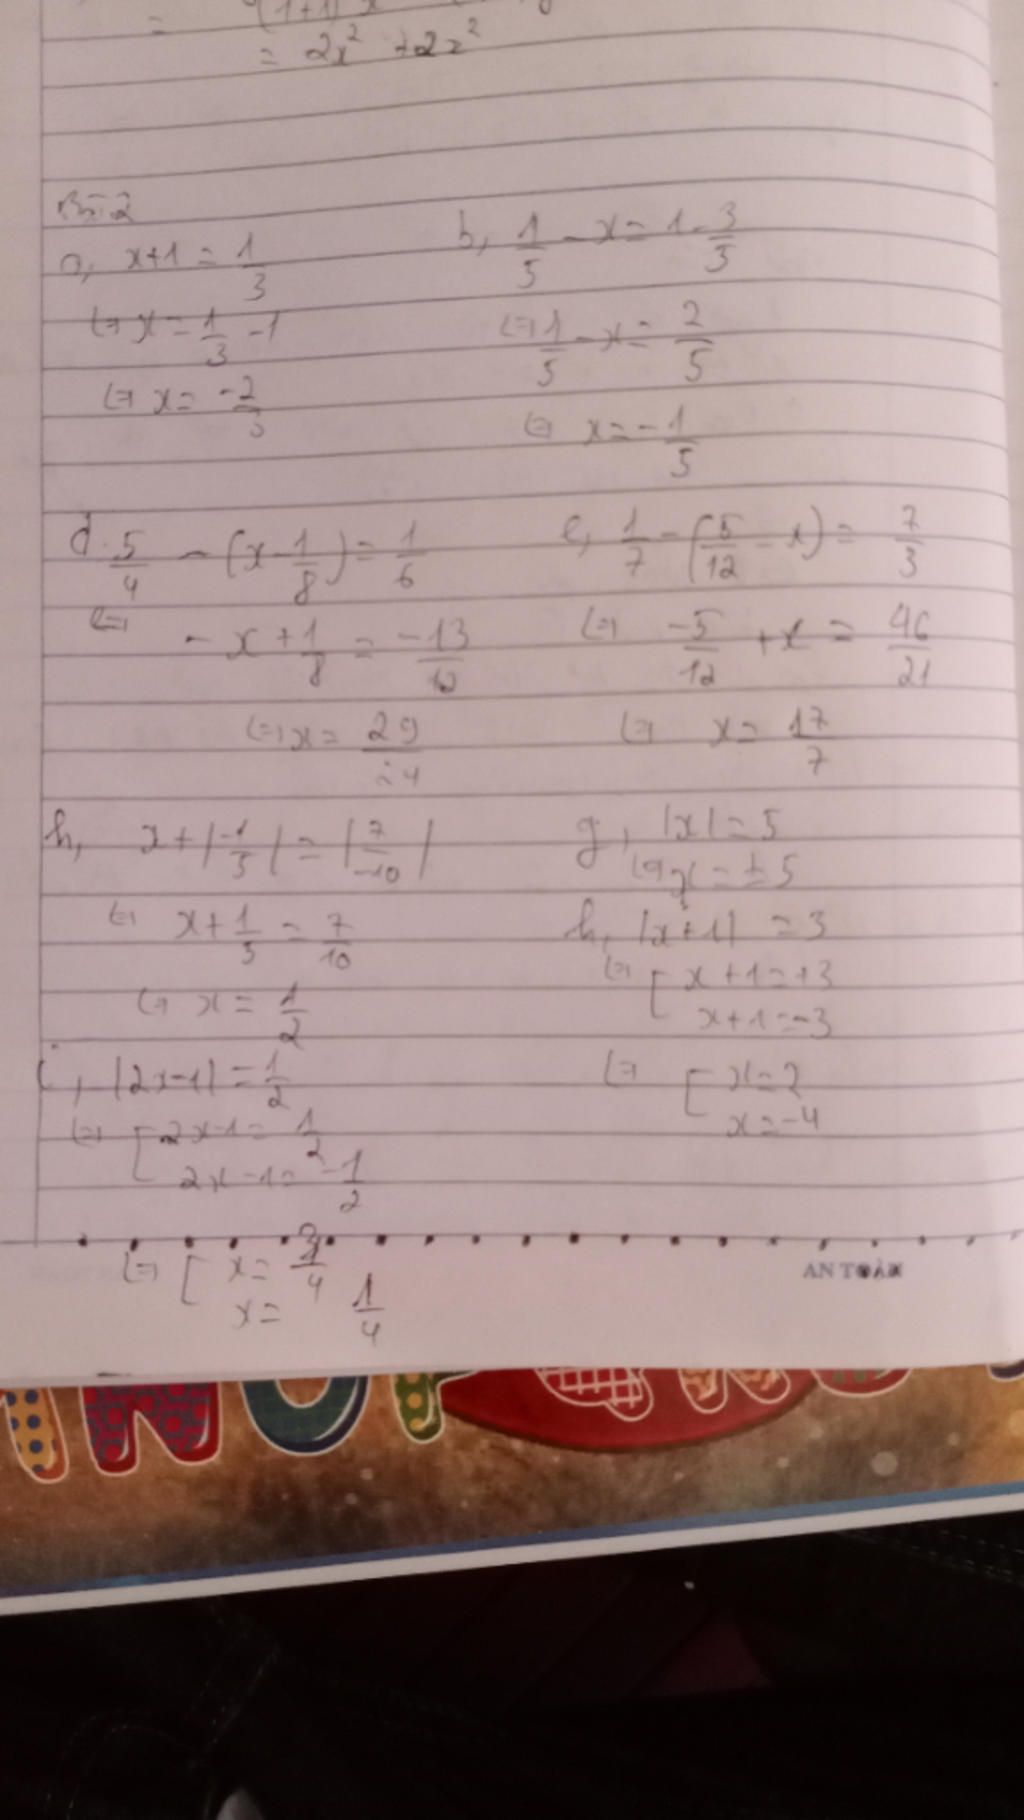 = 2x² + 2z²
Bài 2
a, x+1 = 1/3
⇔ x = 1/3 - 1
⇔ x = -2/3
b, 1/5 - x = 1 - 3/5
⇔ 1/5 - x = 2/5
⇔ x = -1/5
d. 5/4 - (x - 1/8) = 1/6
⇔ - x + 1/8 = -13/12
⇔ x = 29/24
e, 1/7 - (5/12 - x) = 7/3
⇔ -5/12 + x = 46/21
⇔ x = 17/7
h, x + |-1/5| = |7/-10|
⇔ x + 1/5 = 7/10
⇔ x = 1/2
g, |x| = 5
⇔ x = ±5
h, |x+1| = 3
⇔ [ x+1 = +3
x+1 = -3
⇔ [ x = 2
x = -4
i, |2x-1| = 1/2
⇔ [ 2x-1 = 1/2
2x-1 = -1/2
⇔ [ x = 3/4
x = 1/4
AN TOÀN